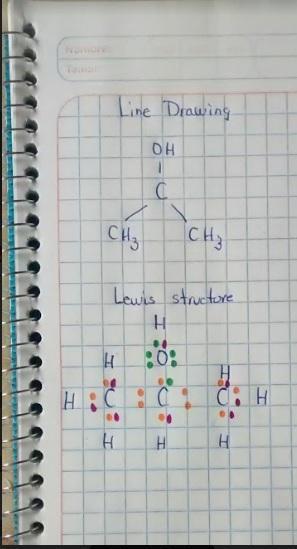 Nombre:
Tema:
Line Drawing
OH
C
CH3 CH3
Lewis structure
H
H O H
H C C C H
H H H